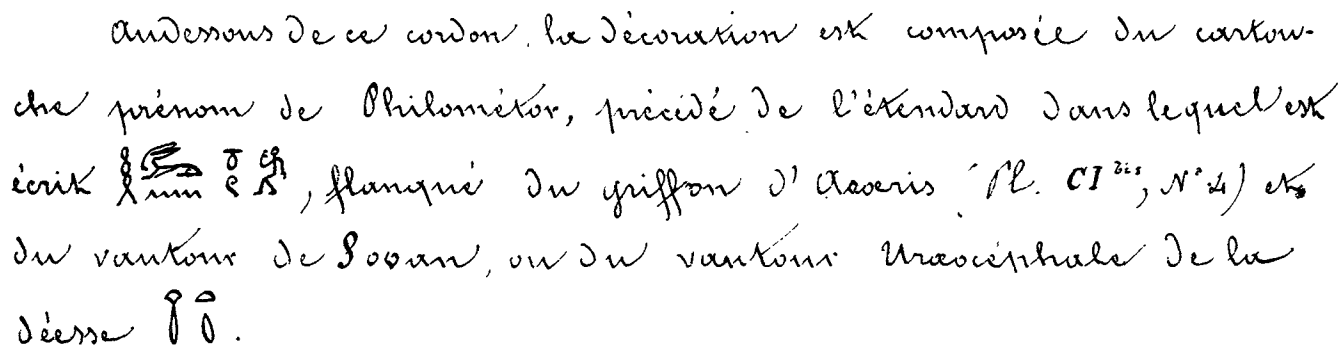 Audessous de ce cordon, la décoration est composée du cartou-
che prénom de Philométor, précédé de l'étendard dans lequel est
écrit , flanqué du griffon d'Aroëris (Pl. CI bis, N° 4) et
du vautour de Sovan, ou du vautour Uraeocéphale de la
déesse .